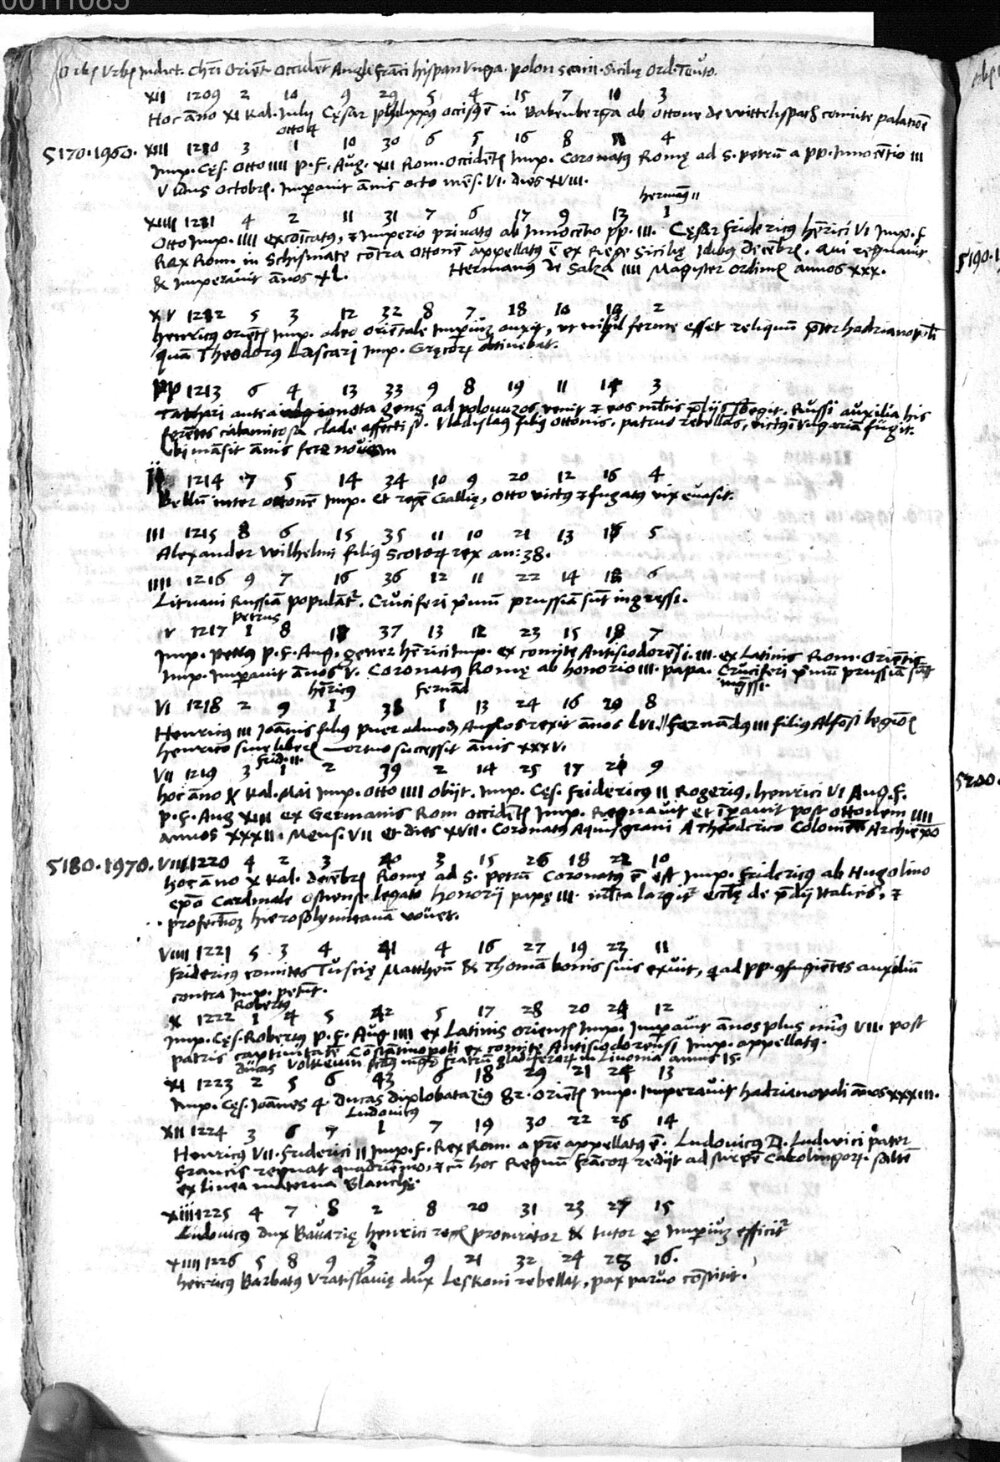 00111085
Orbis Urbis Indict. Chri Orient Occident Angli Franci hispan Vnga. polon scain. Sicilię Ord. Teuto.
XII 1209 2 10 9 29 5 4 15 7 10 3
Hoc año XI Kal. Julij Cęsar philippus occisus ē in Babenberga ab ottone de wittelspach comite palatino
otto 4
5170. 1960. XIII 1210 3 1 10 30 6 5 16 8 11 4
Imp. Cęs. Otto IIII P. F. Aug. XII Rom. Occidētis Imp. Coronatus Romę ad S. petrum a PP. Innocētio III
V idus octobris. Imperauit annis octo mens. VI. dies XVIII.
hermañ II
XIIII 1211 4 2 11 31 7 6 17 9 13 1
Otto Imp. IIII excōicatus, & Imperio priuatus ab Innocētio PP. III. Cęsar Fridericus henrici VI Imp. F
Rex Rom. in Schismate cōtra ottonē appellatus ē ex Rege Sicilię Idibus decēbris. qui regnauit
& Imperauit annos XL. Hermanus de Salza IIII Magister Ordinis annos XXX.
XV 1212 5 3 12 32 8 7 18 10 14 2
henricus oriētis Imp. adeo orientale Imperium auxit, ut nihil ferme esset reliquum pter hadrianopoli
quā Theodorus Lascari Imp. Gręcorum obtinebat.
PP 1213 6 4 13 33 9 8 19 11 14 3
Tarthari antea ignota gens ad polouuzos venit & eos multis pliis subegit. Russi auxilia his
ferētes calamitosa clade affecti st. Vladislaus filius ottonis, patruo rebellās, victus Vngariam fugit.
Vbi mansit annis fere nouem
II 1214 7 5 14 34 10 9 20 12 16 4
Bellū inter ottonē Imp. et regē Gallię, otto victus & fugatus vix euasit.
III 1215 8 6 15 35 11 10 21 13 16 5
Alexander Wilhelmi filius Scotorum rex an: 38.
IIII 1216 9 7 16 36 12 11 22 14 18 6
Lituani Russiam populant. Cruciferi primum prussiam sūt ingressi.
petrus
V 1217 1 8 17 37 13 12 23 15 18 7
Imp. petrus P. F. Aug. gener hērici Imp. ex comite Antisiodorēsi. III. ex Latinis Rom. Oriētis
Imp. Imperauit annos V. Coronatus Romę ab honorio III. papa. Cruciferi primum prussiam sūt
ingssi.
hēricus Fernand
VI 1218 2 9 1 38 1 13 24 16 29 8
Henricus III Joānis filius puer admodum Anglos rexit annos LVI. // Fernandus III filius Alfosi legionis
henrico sine liberis mortuo successit annis XXXV.
Frid. II.
VII 1219 3 1 2 39 2 14 25 17 20 9
hoc año X Kal. Mai Imp. otto IIII obijt. Imp. Cęs. Fridericus II Rogerius, henrici VI Aug. F.
P. F. Aug XIII ex Germanis Rom Occidētis Imp. Regnauit et Iperauit post ottonem IIII
annos XXXII. Mens. VII et dies XVII. Coronatus Aquisgrani A Theoderico Coloniēsi Archiepo
5180. 1970. VIII 1220 4 2 3 40 3 15 26 18 22 10
hoc anno X Kal. decēbris Romę ad S. Petrum Coronatus ē est Imp. Fridericus ab Hugolino
epo Cardinale ostiense legato honorij papę III. multa largitur ecclę de pdij Italicis, &
profectionem hierosolymitanā vouet.
VIIII 1221 5 3 4 41 4 16 27 19 23 11
Fridericus comites Tuscię Matthęum & Thomam bonis suis exuit, q ad PP. cōfugiētes auxilium
contra Imp. petunt.
Robertus
X 1222 1 4 5 42 5 17 28 20 24 12
Imp. Cęs. Robertus P. F. Aug IIII ex Latinis orientis Imp. Imperauit annos plus minus VII. post
patris captiuitatē Cōstātinopoli ex comite Antisiodorensi Imp. appellatus.
Ducas Volkewin magr fratrum gladiferorum in Liuonia annis 15.
XI 1223 2 5 6 43 6 18 29 21 24 13
Imp. Cęs. Joānes 4 Ducas diplobatazius 82. oriētis Imp. Imperauit hadrianopoli annos XXXIII.
Ludouicus
XII 1224 3 6 7 1 7 19 30 22 26 14
Henricus VII. Friderici II Imp. F. Rex Rom. a pre appellatus ē. Ludouicus D. Ludwici pater
Francis regnat quadriennio, & cū hoc Regnum Francorum redijt ad stirpē Carolingorum. saltē
ex linea materna Blanchę.
XIII 1225 4 7 8 2 8 20 31 23 27 15
Ludouicus dux Bauarię henrici regis procurator & tutor per Imperium efficitur
XIIII 1226 5 8 9 3 9 21 32 24 28 16.
henricus Barbatus Vratislauię dux Leskoni rebellat, pax paruo constitit.
5190.
5200.